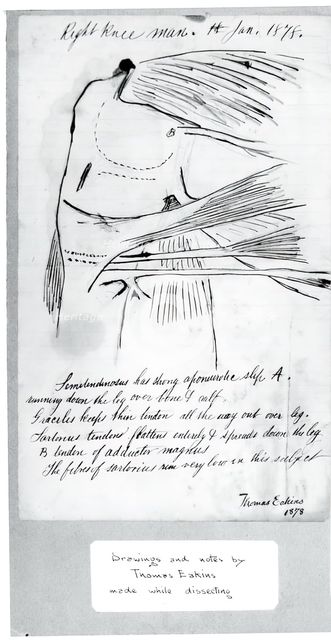 Right Knee man. 14 Jan. 1878.
B
Semitendinosus has strong aponeurotic slip A.
running down the leg over bone & calf.
Gracilis keeps thin tendon all the way out over leg.
Sartorius tendons flattens entirely & spreads down the leg
B tendon of adductor magnus
The fibres of sartorius run very low in this subject
Thomas Eakins
1878
Drawings and notes by
Thomas Eakins
made while dissecting